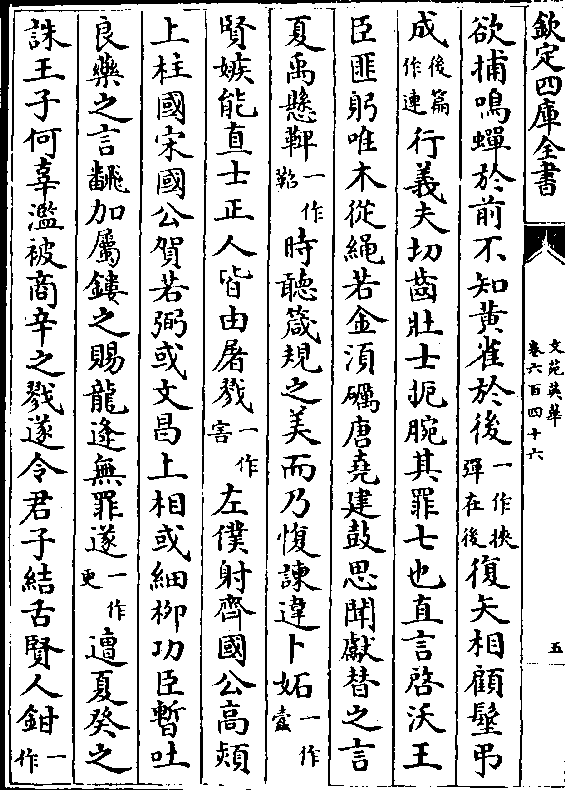 欽定四庫全書
文苑英華
卷六百四十六
五
欲捕鳴蟬於前不知黃雀於後一作挾彈在後復矢相顧髽弔
成後篇作連行義夫切齒壯士扼腕其罪七也直言啓沃王
臣匪躬唯木從繩若金湏礪唐堯建鼓思聞獻替之言
夏禹懸鞞一作鞀時聽箴規之美而乃愎諫違卜妬一作蠧
賢嫉能直士正人皆由屠戮一作害左僕射齊國公高熲
上柱國宋國公賀若弼或文昌上相或細栁功臣暫吐
良藥之言飜加屬鏤之賜龍逄無罪遂一作更遭夏癸之
誅王子何辜濫被商辛之戮遂令君子結舌賢人鉗一作